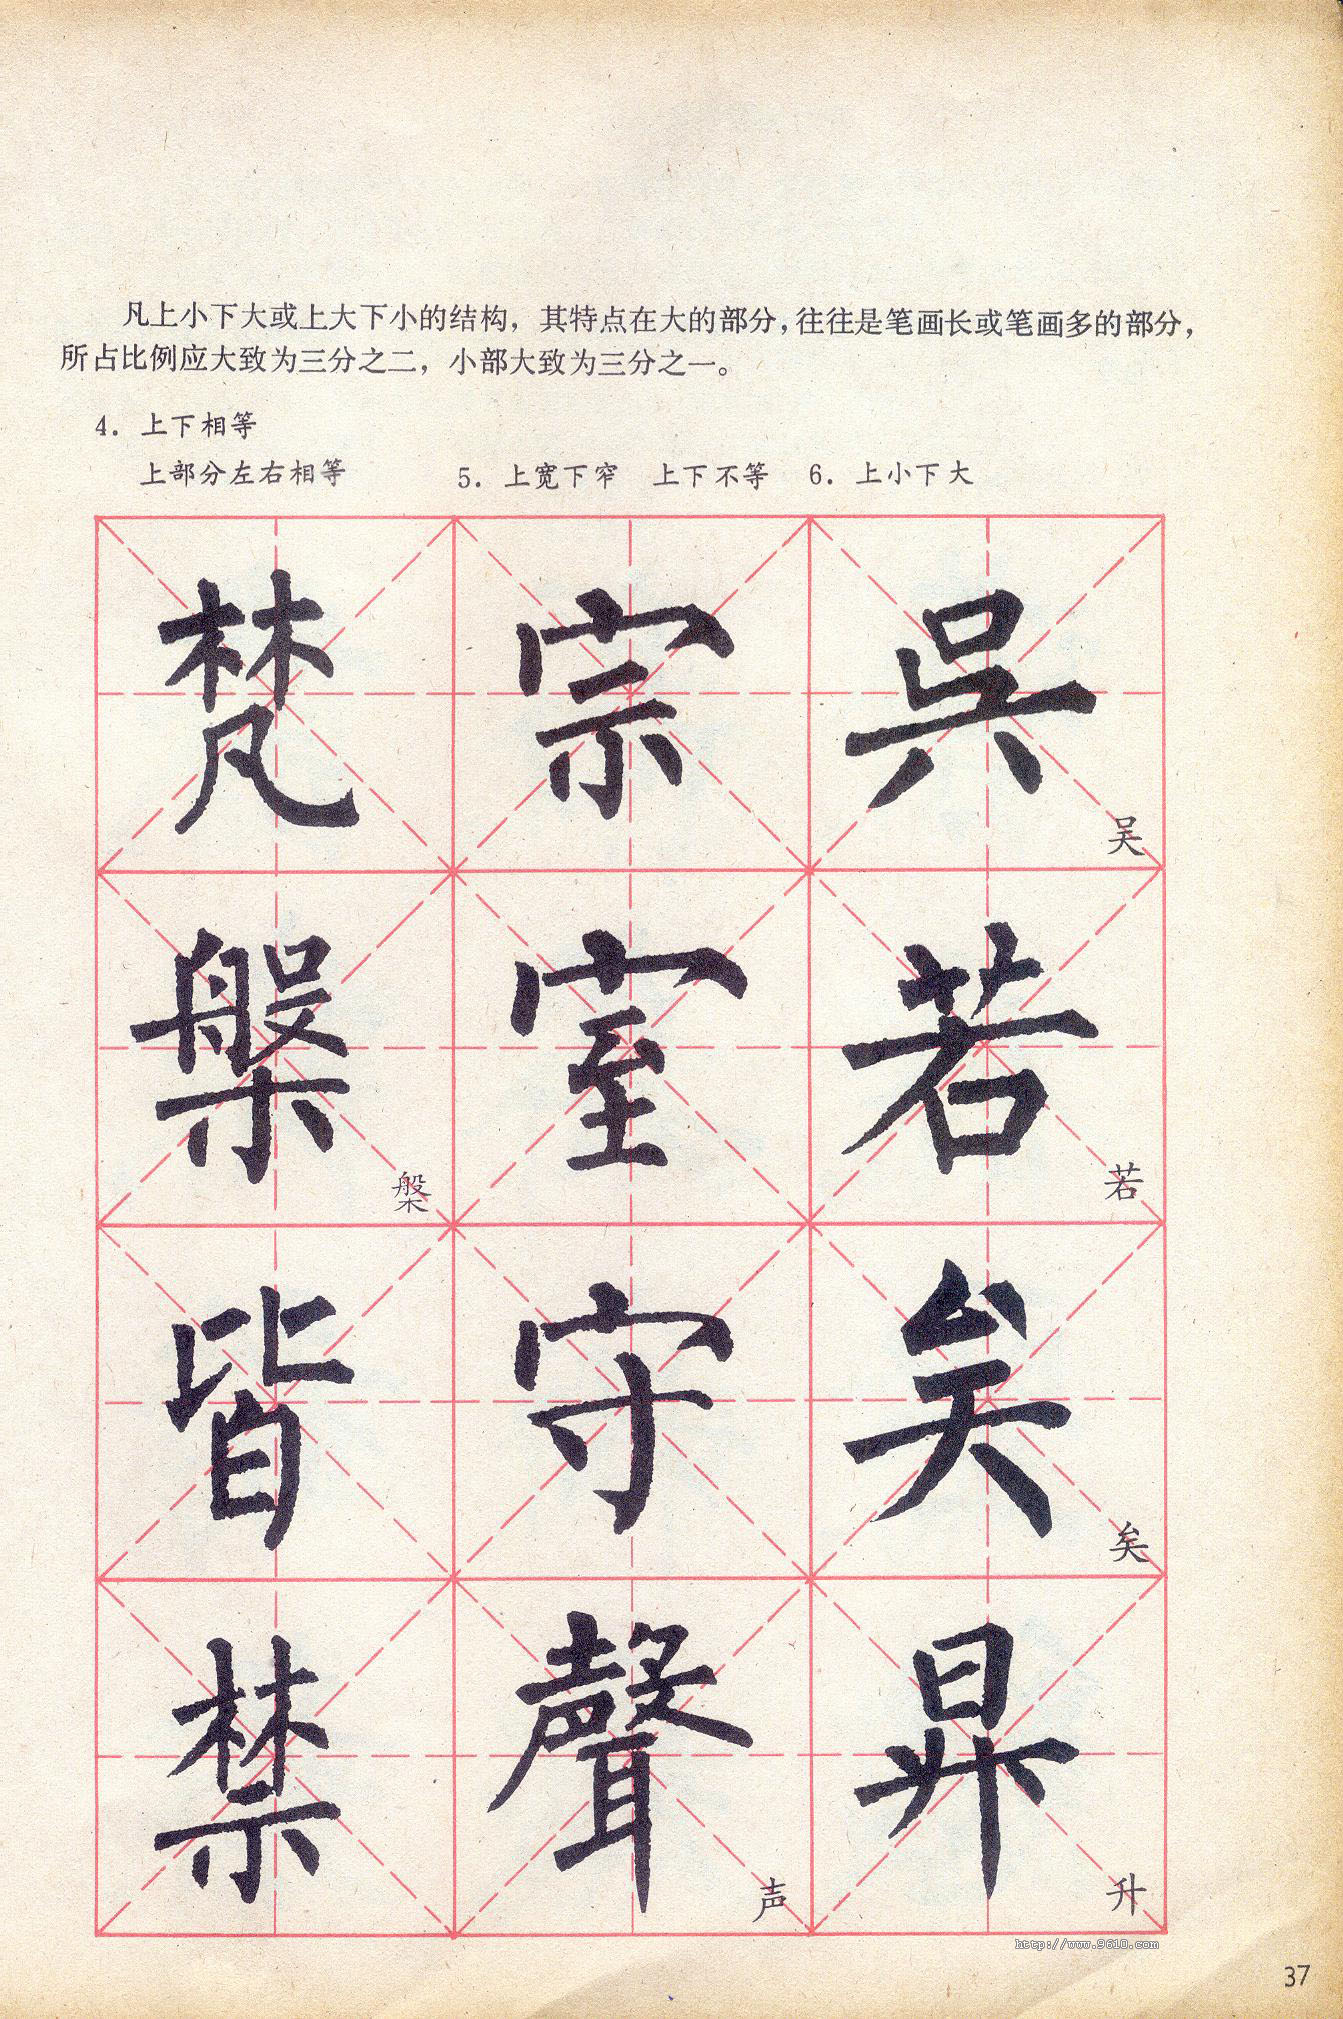 凡上小下大或上大下小的结构，其特点在大的部分，往往是笔画长或笔画多的部分，
所占比例应大致为三分之二，小部大致为三分之一。
4．上下相等
上部分左右相等
5．上宽下窄　上下不等
6．上小下大
梵 宗 吳
吴
槃 室 若
槃 若
皆 守 矣
矣
禁 聲 昇
声 升
http://www.9610.com
37